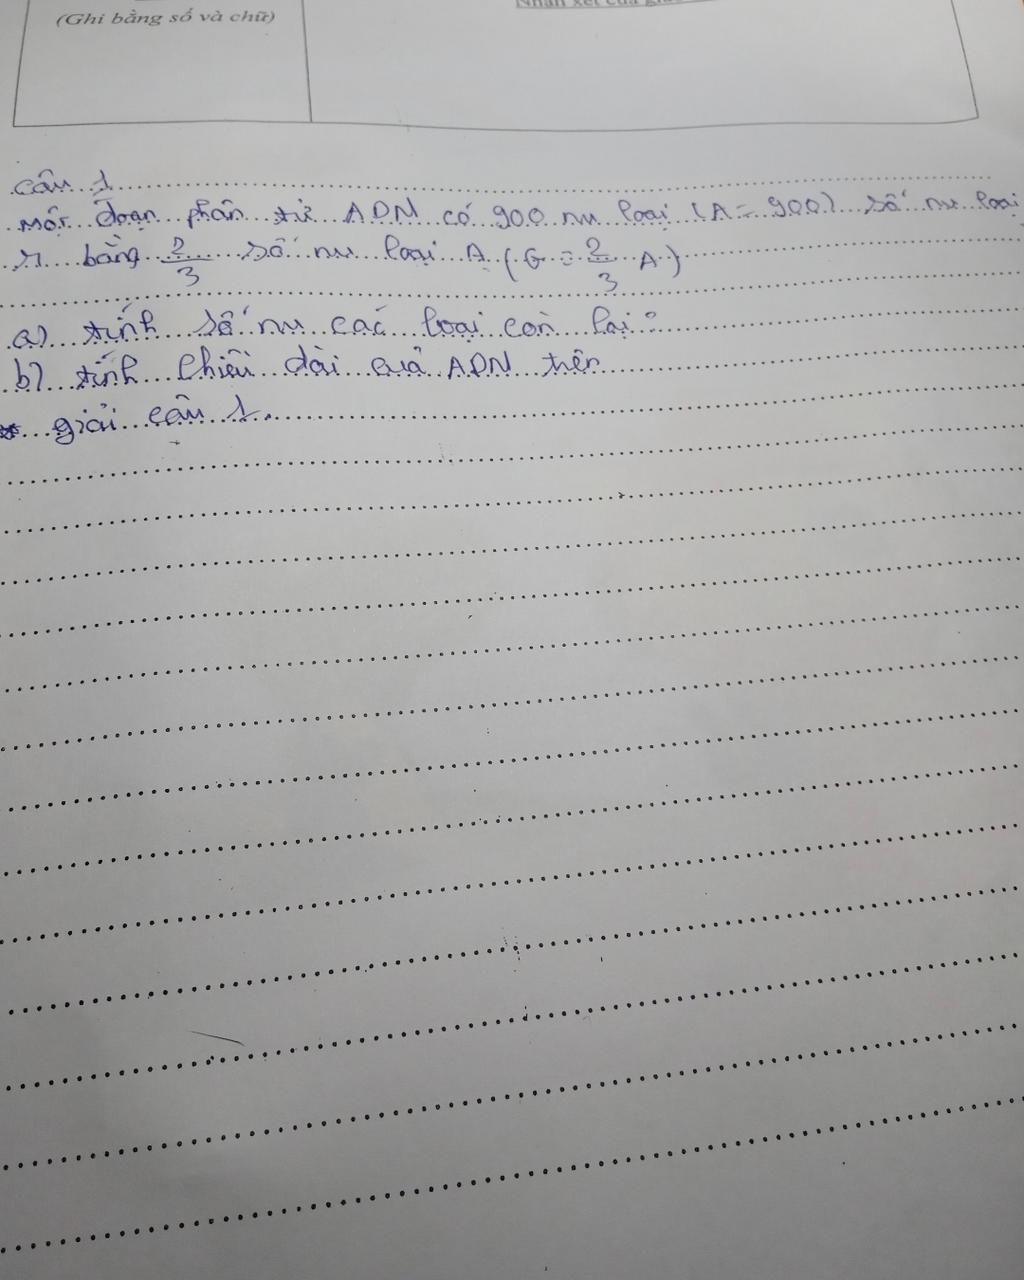 (Ghi bằng số và chữ)
Nhận xét của giáo
câu 1
một đoạn phân tử ADN có 900 nu loại (A = 900) số nu loại
bằng 2/3 số nu loại A (G = 2/3 A)
a) tính số nu các loại còn lại?
b) tính chiều dài của ADN trên
* giải câu 1.